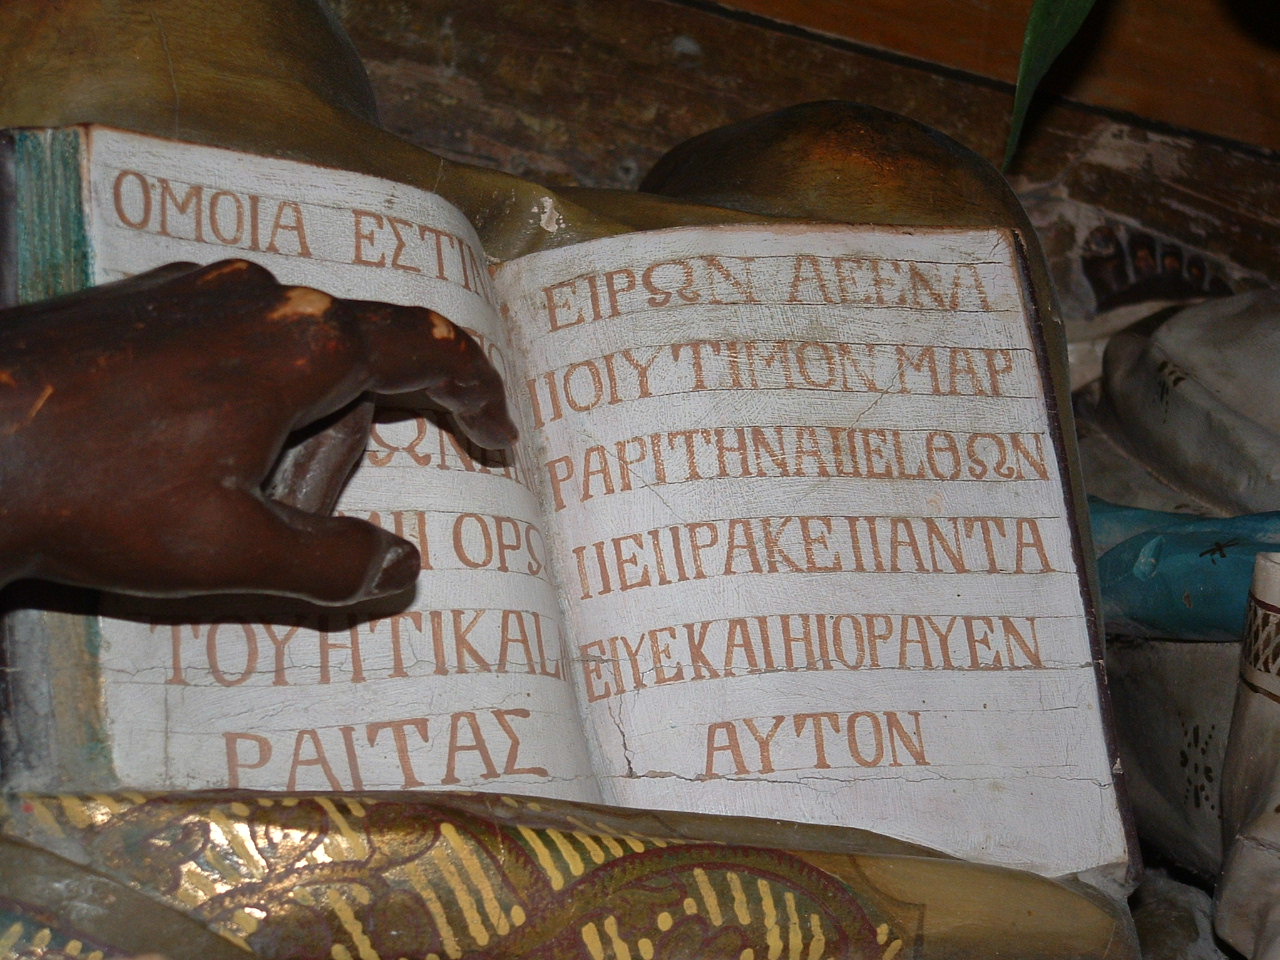 ΟΜΟΙΑ ΕΣΤΙΝ
ΟΡΩ
ΤΟΥΗΤΙΚΑΙ
ΡΑΙΤΑΣ
ΕΙΡΩΝ ΔΕΕΝΑ
ΠΟΙΥΤΙΜΟΝ ΜΑΡ
ΡΑΡΙΤΗΝΑΠΕΛΘΩΝ
ΠΕΠΡΑΚΕΠΑΝΤΑ
ΕΙΥΕΚΑΙΗΙΟΡΑΥΕΝ
ΑΥΤΟΝ